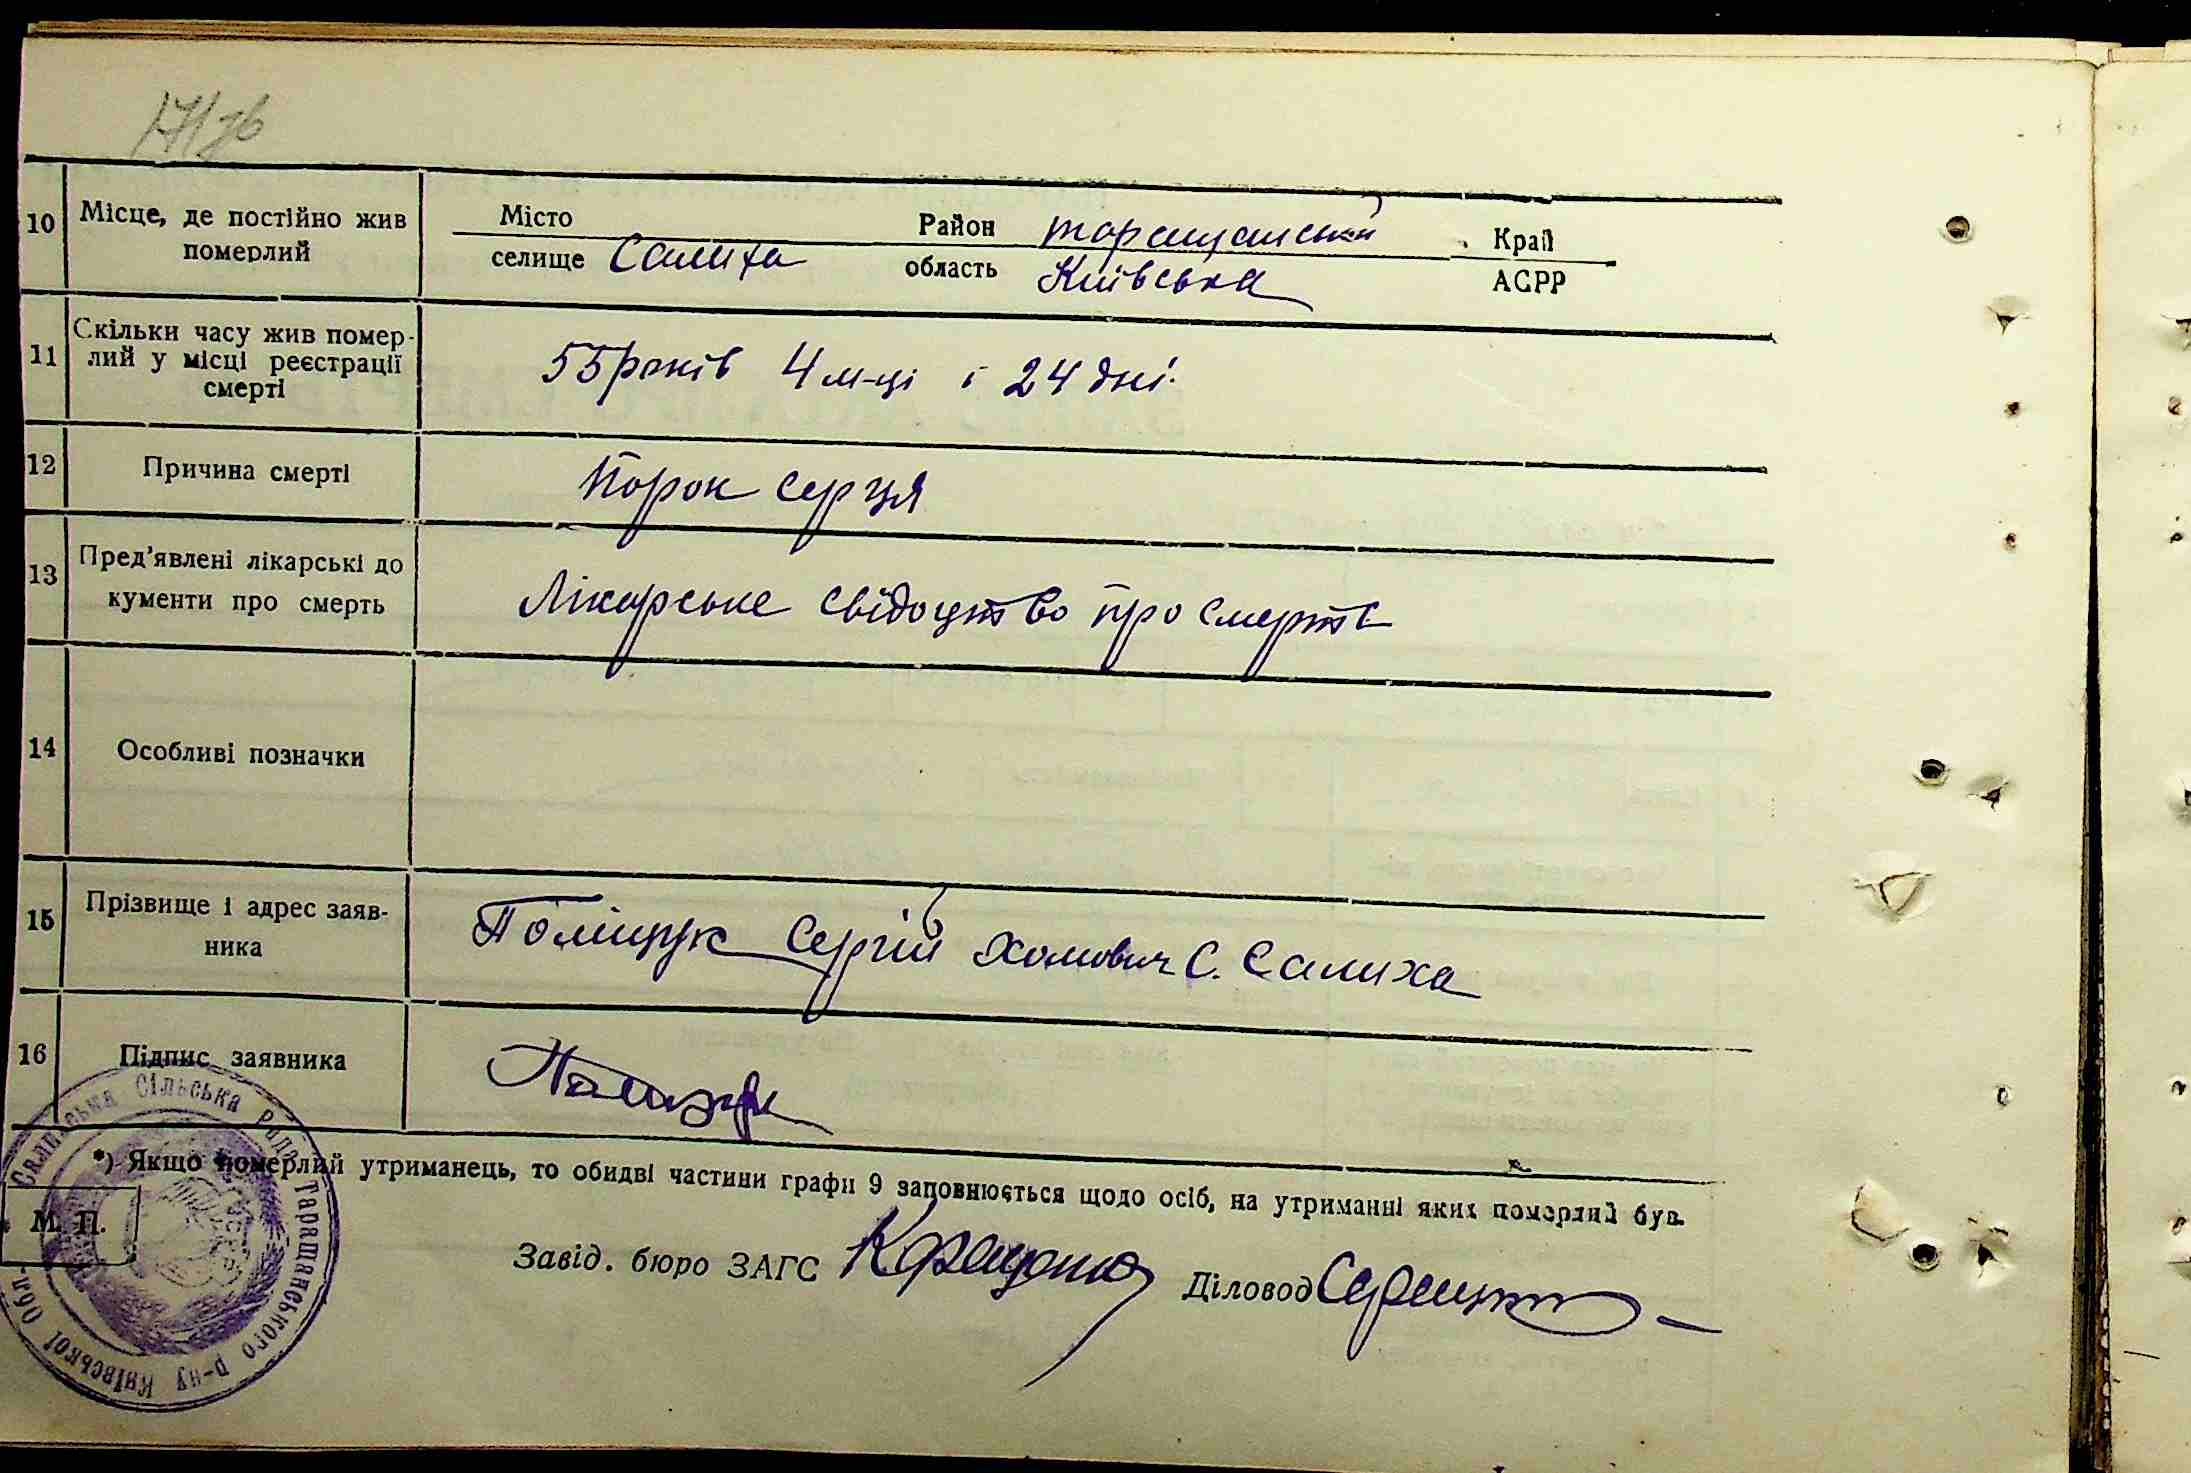 10 Місце, де постійно жив померлий
Місто
селище Салиха
Район таращанський
область Київська
Край
АСРР
11 Скільки часу жив помер-
лий у місці реєстрації
смерті
55 років 4 м-ці і 24 дні.
12 Причина смерті
Порок серця
13 Пред'явлені лікарські до
кументи про смерть
Лікарське свідоцтво про смерть
14 Особливі позначки
15 Прізвище і адрес заяв-
ника
Поліщук Сергій Хомович С. Салиха
16 Підпис заявника
*) Якщо померлий утриманець, то обидві частини графи 9 заповнюється щодо осіб, на утриманні яких померлий був.
М. П.
Завід. бюро ЗАГС
Діловод
Сільська рада Таращанського р-ну Київської Обл.